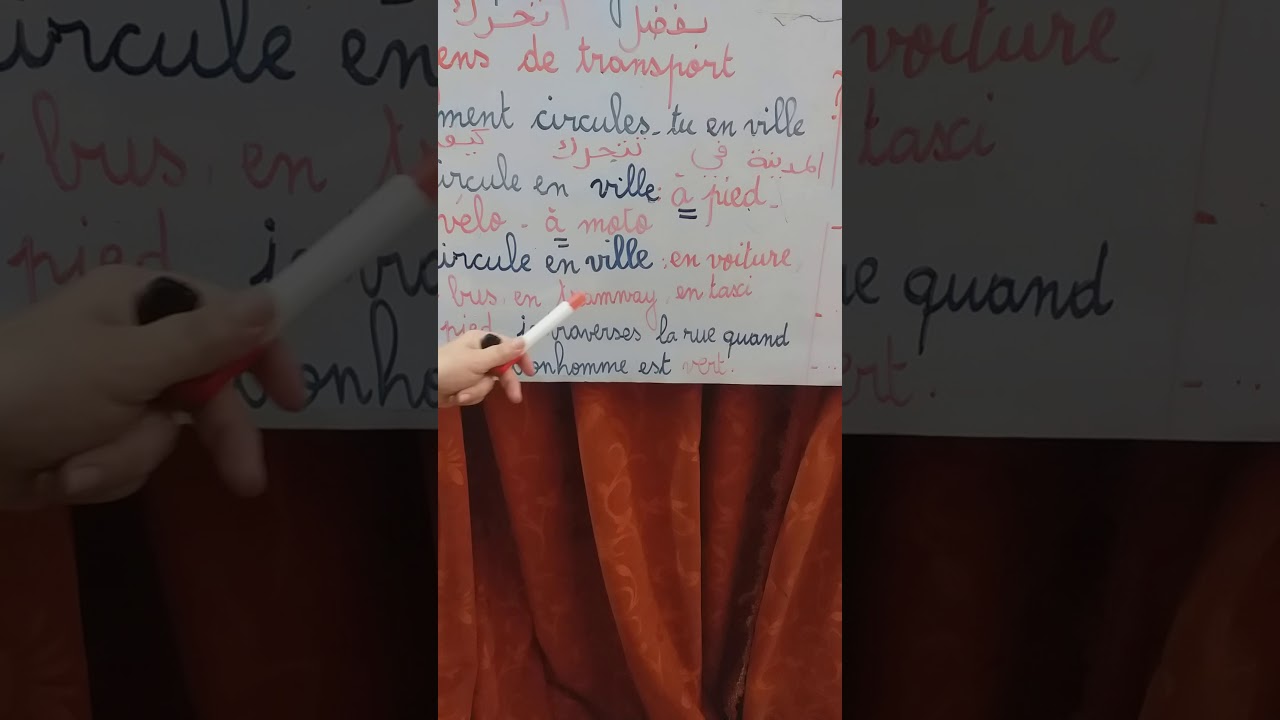 بفضل أتحرك
ens de transport
ment circules-tu en ville
المدينة في تتحرك كيف
ircule en ville à pied-
vélo - à moto
ircule en ville en voiture,
bus, en tramway, en tasci
pied je traverses la rue quand
bonhomme est vert.